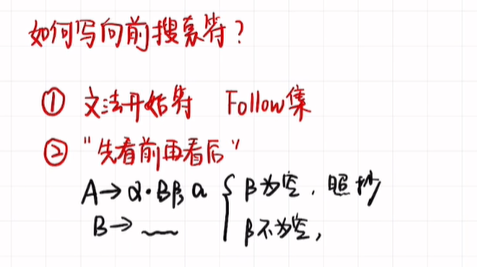 如何写向前搜索符？
① 文法开始符 Follow集
② “先看前再看后”
A→α·Bβ, a { β为空，照抄
B→ ﹏ β不为空，